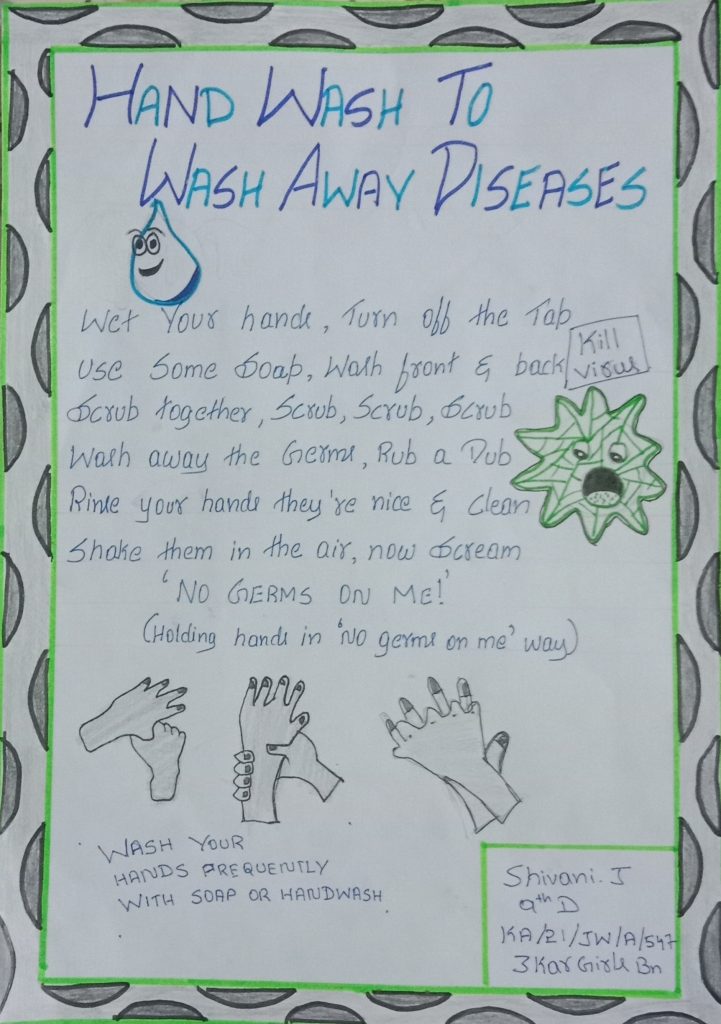 HAND WASH TO
WASH AWAY DISEASES
Wet Your hands, Turn off the Tap
Use Some Soap, Wash front & back
Kill
virus
Scrub together, Scrub, Scrub, Scrub
Wash away the Germs, Rub a Dub
Rinse your hands they're nice & Clean
Shake them in the air, now Scream
'NO GERMS ON ME!'
(Holding hands in 'No germs on me' way)
WASH YOUR
HANDS FREQUENTLY
WITH SOAP OR HANDWASH
Shivani. J
9th D
KA/21/JW/A/547
3 Kar Girls Bn